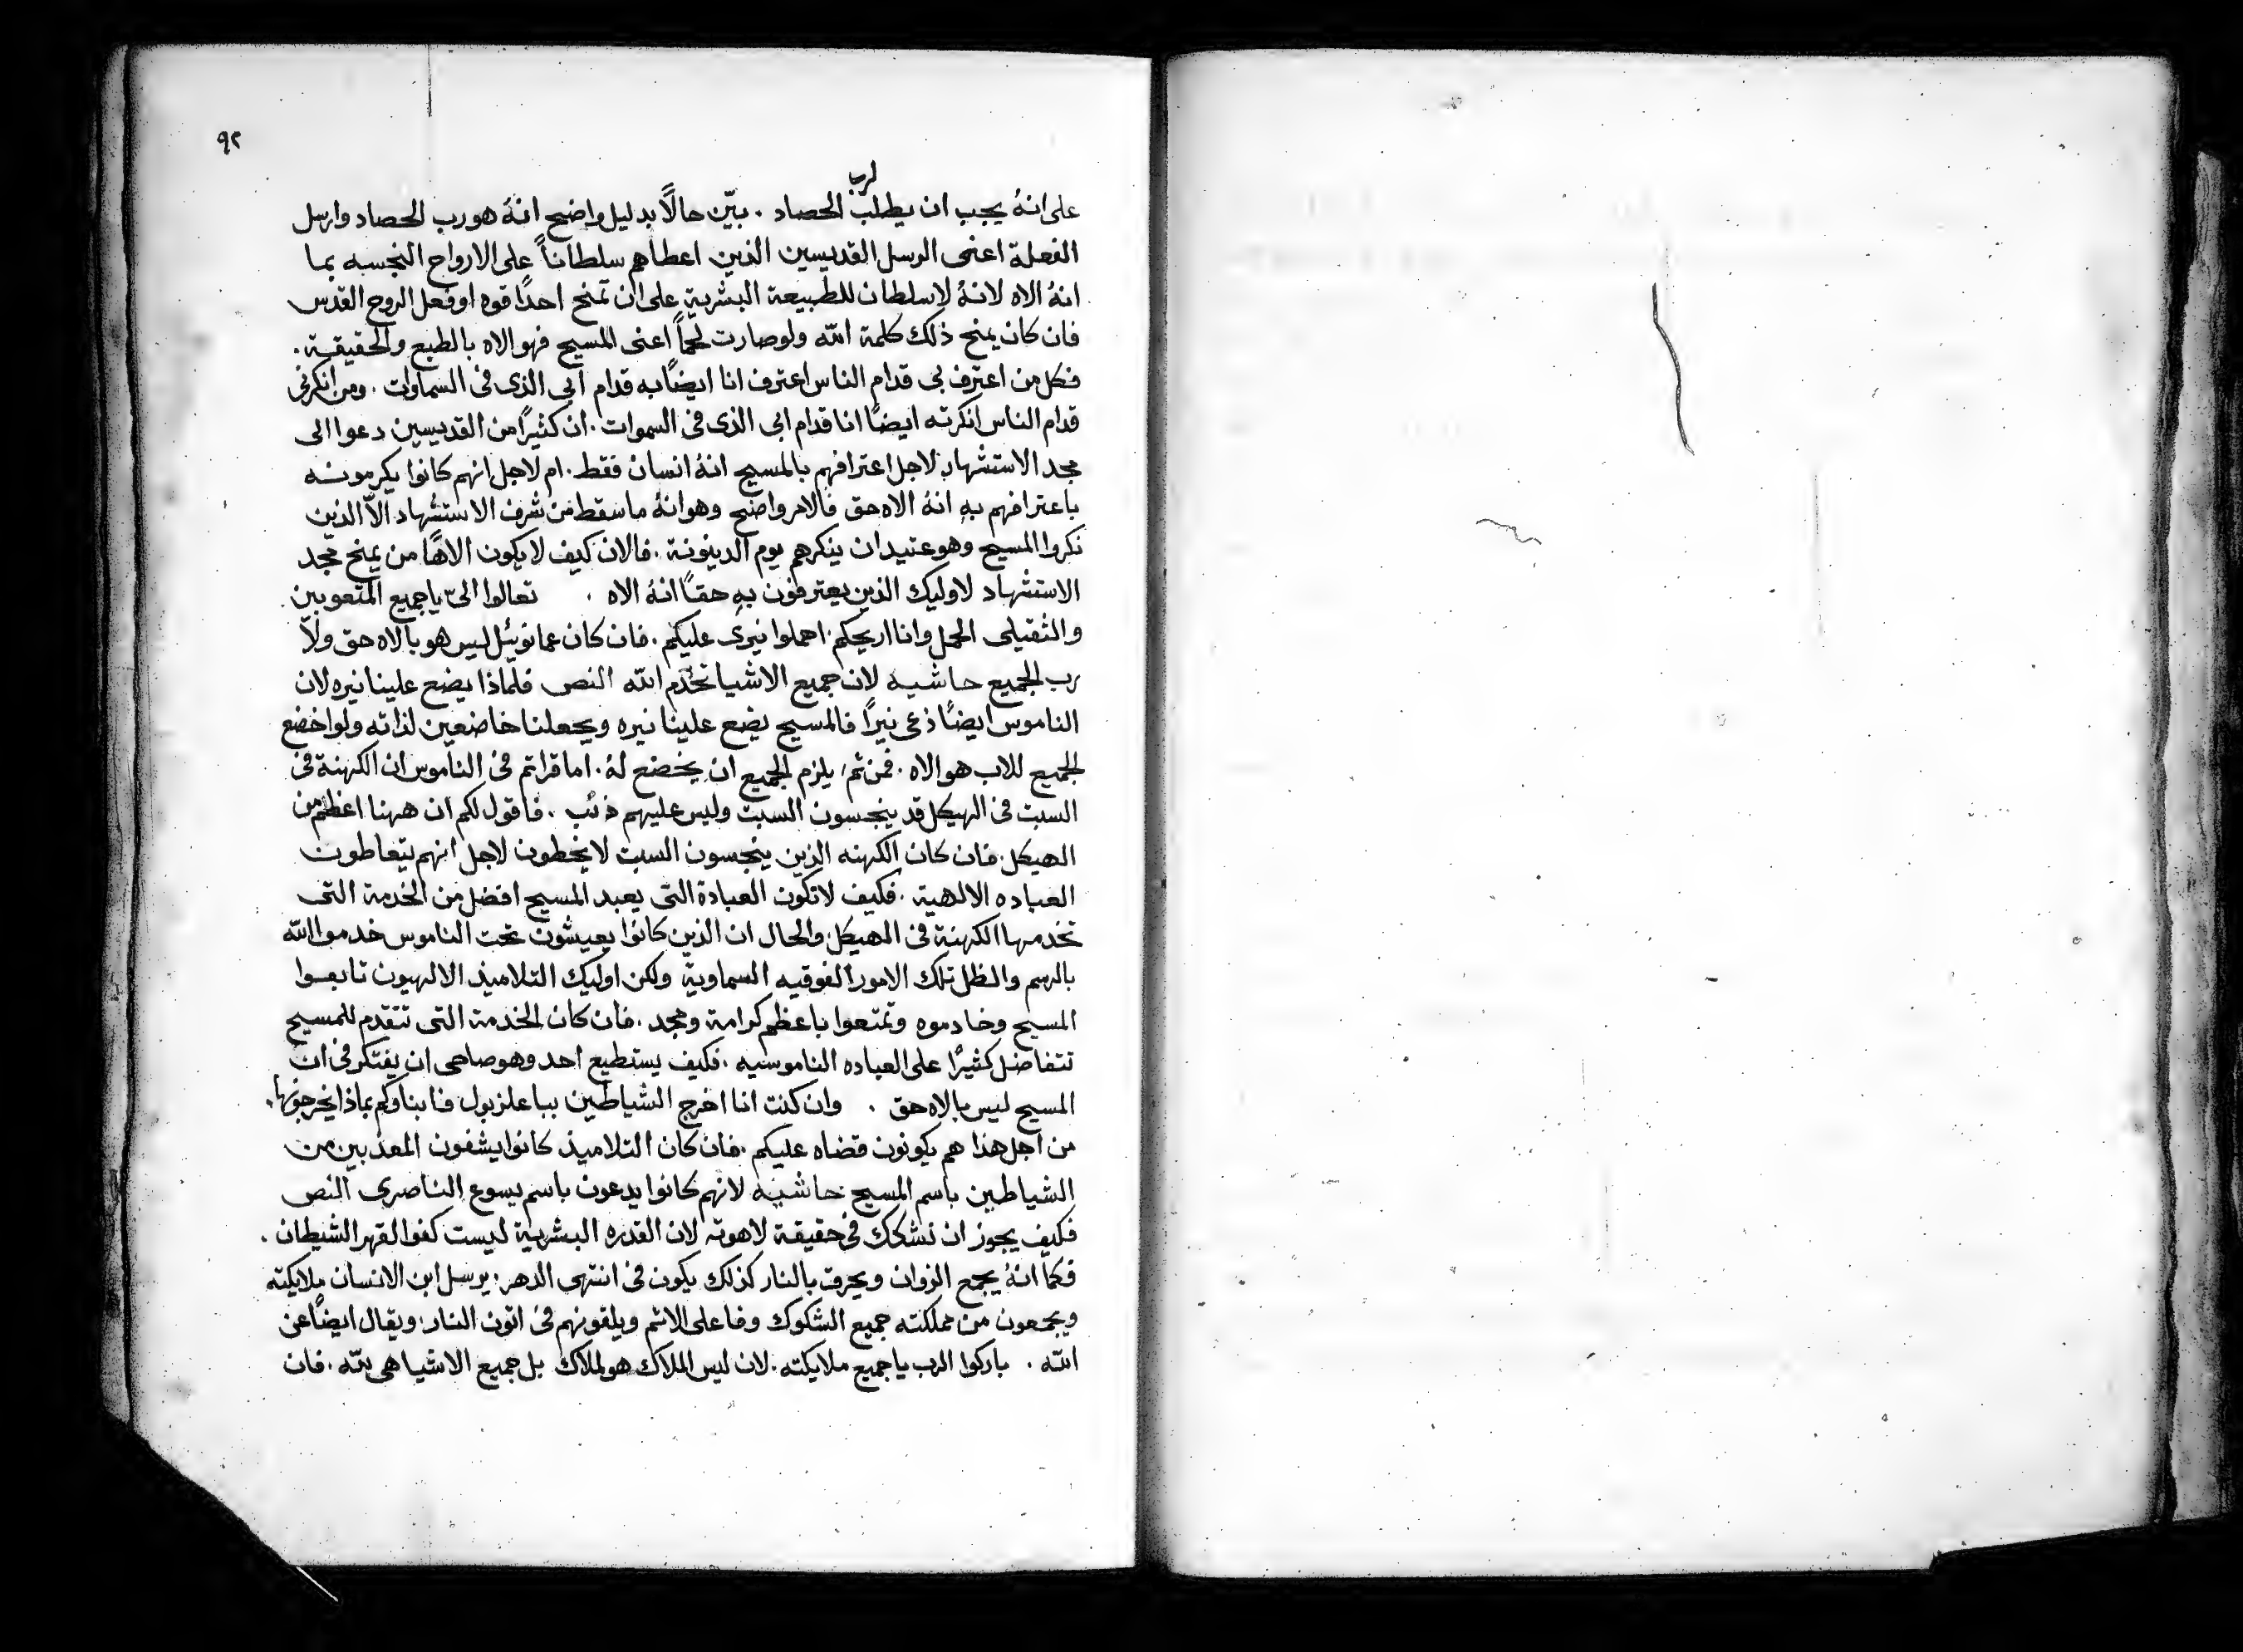 ٩٢
لرب
على انهُ يجب ان يطلب الحصاد . بيّن حالاً بدليل واضح انهُ هو رب الحصاد وارسل
الفعلة اعنى الرسل القديسين الذين اعطاهم سلطاناً على الارواح النجسه بما
انهُ الاه لانهُ لا سلطان للطبيعة البشرية على ان تمنح احدًا قوه او فعل الروح القدس
فان كان يمنح ذلك كلمة الله ولو صارت لحماً اعنى المسيح فهو الاه بالطبع والحقيقة .
فكل من اعترف بى قدام الناس اعترف انا ايضًا به قدام ابى الذى فى السماوات . ومن انكرنى
قدام الناس انكرته ايضًا انا قدام ابى الذى فى السموات . ان كثيرًا من القديسين دعوا الى
مجد الاستشهاد لاجل اعترافهم بالمسيح انهُ انسان فقط . ام لاجل انهم كانوا يكرمونه
باعترافهم بهِ انهُ الاه حق فالامر واضح وهو انهُ ما سقط من شرف الاستشهاد الّا الذين
نكروا المسيح وهو عتيد ان ينكرهم يوم الدينونة . فالان كيف لا يكون الاهًا من يمنح مجد
الاستشهاد لاوليك الذين يعترفون بهِ حقًا انهُ الاه . تعالوا الىّ يا جميع المتعوبين
والثقيلى الحمل وانا اريحكم . احملوا نيرى عليكم . فان كان عمانوئيل ليس هو بالاه حق ولا
رب الجميع حاشيه لان جميع الاشيا تخدم الله النص فلماذا يضع علينا نيره لان
الناموس ايضًا دعى نيراً فالمسيح يضع علينا نيره ويجعلنا خاضعين لذاته ولو اخضع
الجميع للاب هو الاه . فمن ثم يلزم الجميع ان يخضع لهُ . اما قراتم فى الناموس ان الكهنة فى
السبت فى الهيكل قد ينجسون السبت وليس عليهم ذنب . فاقول لكم ان ههنا اعظم من
الهيكل . فان كان الكهنه الذين ينجسون السبت لا يخطون لاجل انهم يتعاطون
العباده الالهية . فكيف لا تكون العبادة التى يعبد المسيح افضل من الخدمة التى
تخدمها الكهنة فى الهيكل والحال ان الذين كانوا يعيشون تحت الناموس خدموا الله
بالرسم والظل تلك الامور الفوقيه السماوية ولكن اوليك التلاميذ الالهيون تابعوا
المسيح وخادموه وتمتعوا باعظم كرامة ومجد . فان كان الخدمة التى تتقدم للمسيح
تتفاضل كثيرًا على العباده الناموسيه . فكيف يستطيع احد وهو صاحى ان يفتكر فى ان
المسيح ليس بالاه حق . وان كنت انا اخرج الشياطين بباعلزبول فابناوكم بماذا يخرجونها .
من اجل هذا هم يكونون قضاه عليكم . فان كان التلاميذ كانوا يشفون المعذبين من
الشياطين باسم المسيح حاشيه لانهم كانوا يدعون باسم يسوع الناصرى النص
فكيف يجوز ان نشكك فى حقيقة لاهوته لان القدره البشرية ليست كفوا لقهر الشيطان .
فكما انهُ يجمع الزوان ويحرق بالنار كذلك يكون فى انتهى الدهر . يرسل ابن الانسان ملايكته
ويجمعون من مملكته جميع الشكوك وفاعلى الاثم ويلقونهم فى اتون النار . ويقال ايضًا عن
الله . باركوا الرب يا جميع ملايكته . لان ليس الملاك هو لملاك بل جميع الاشيا هى لله . فان